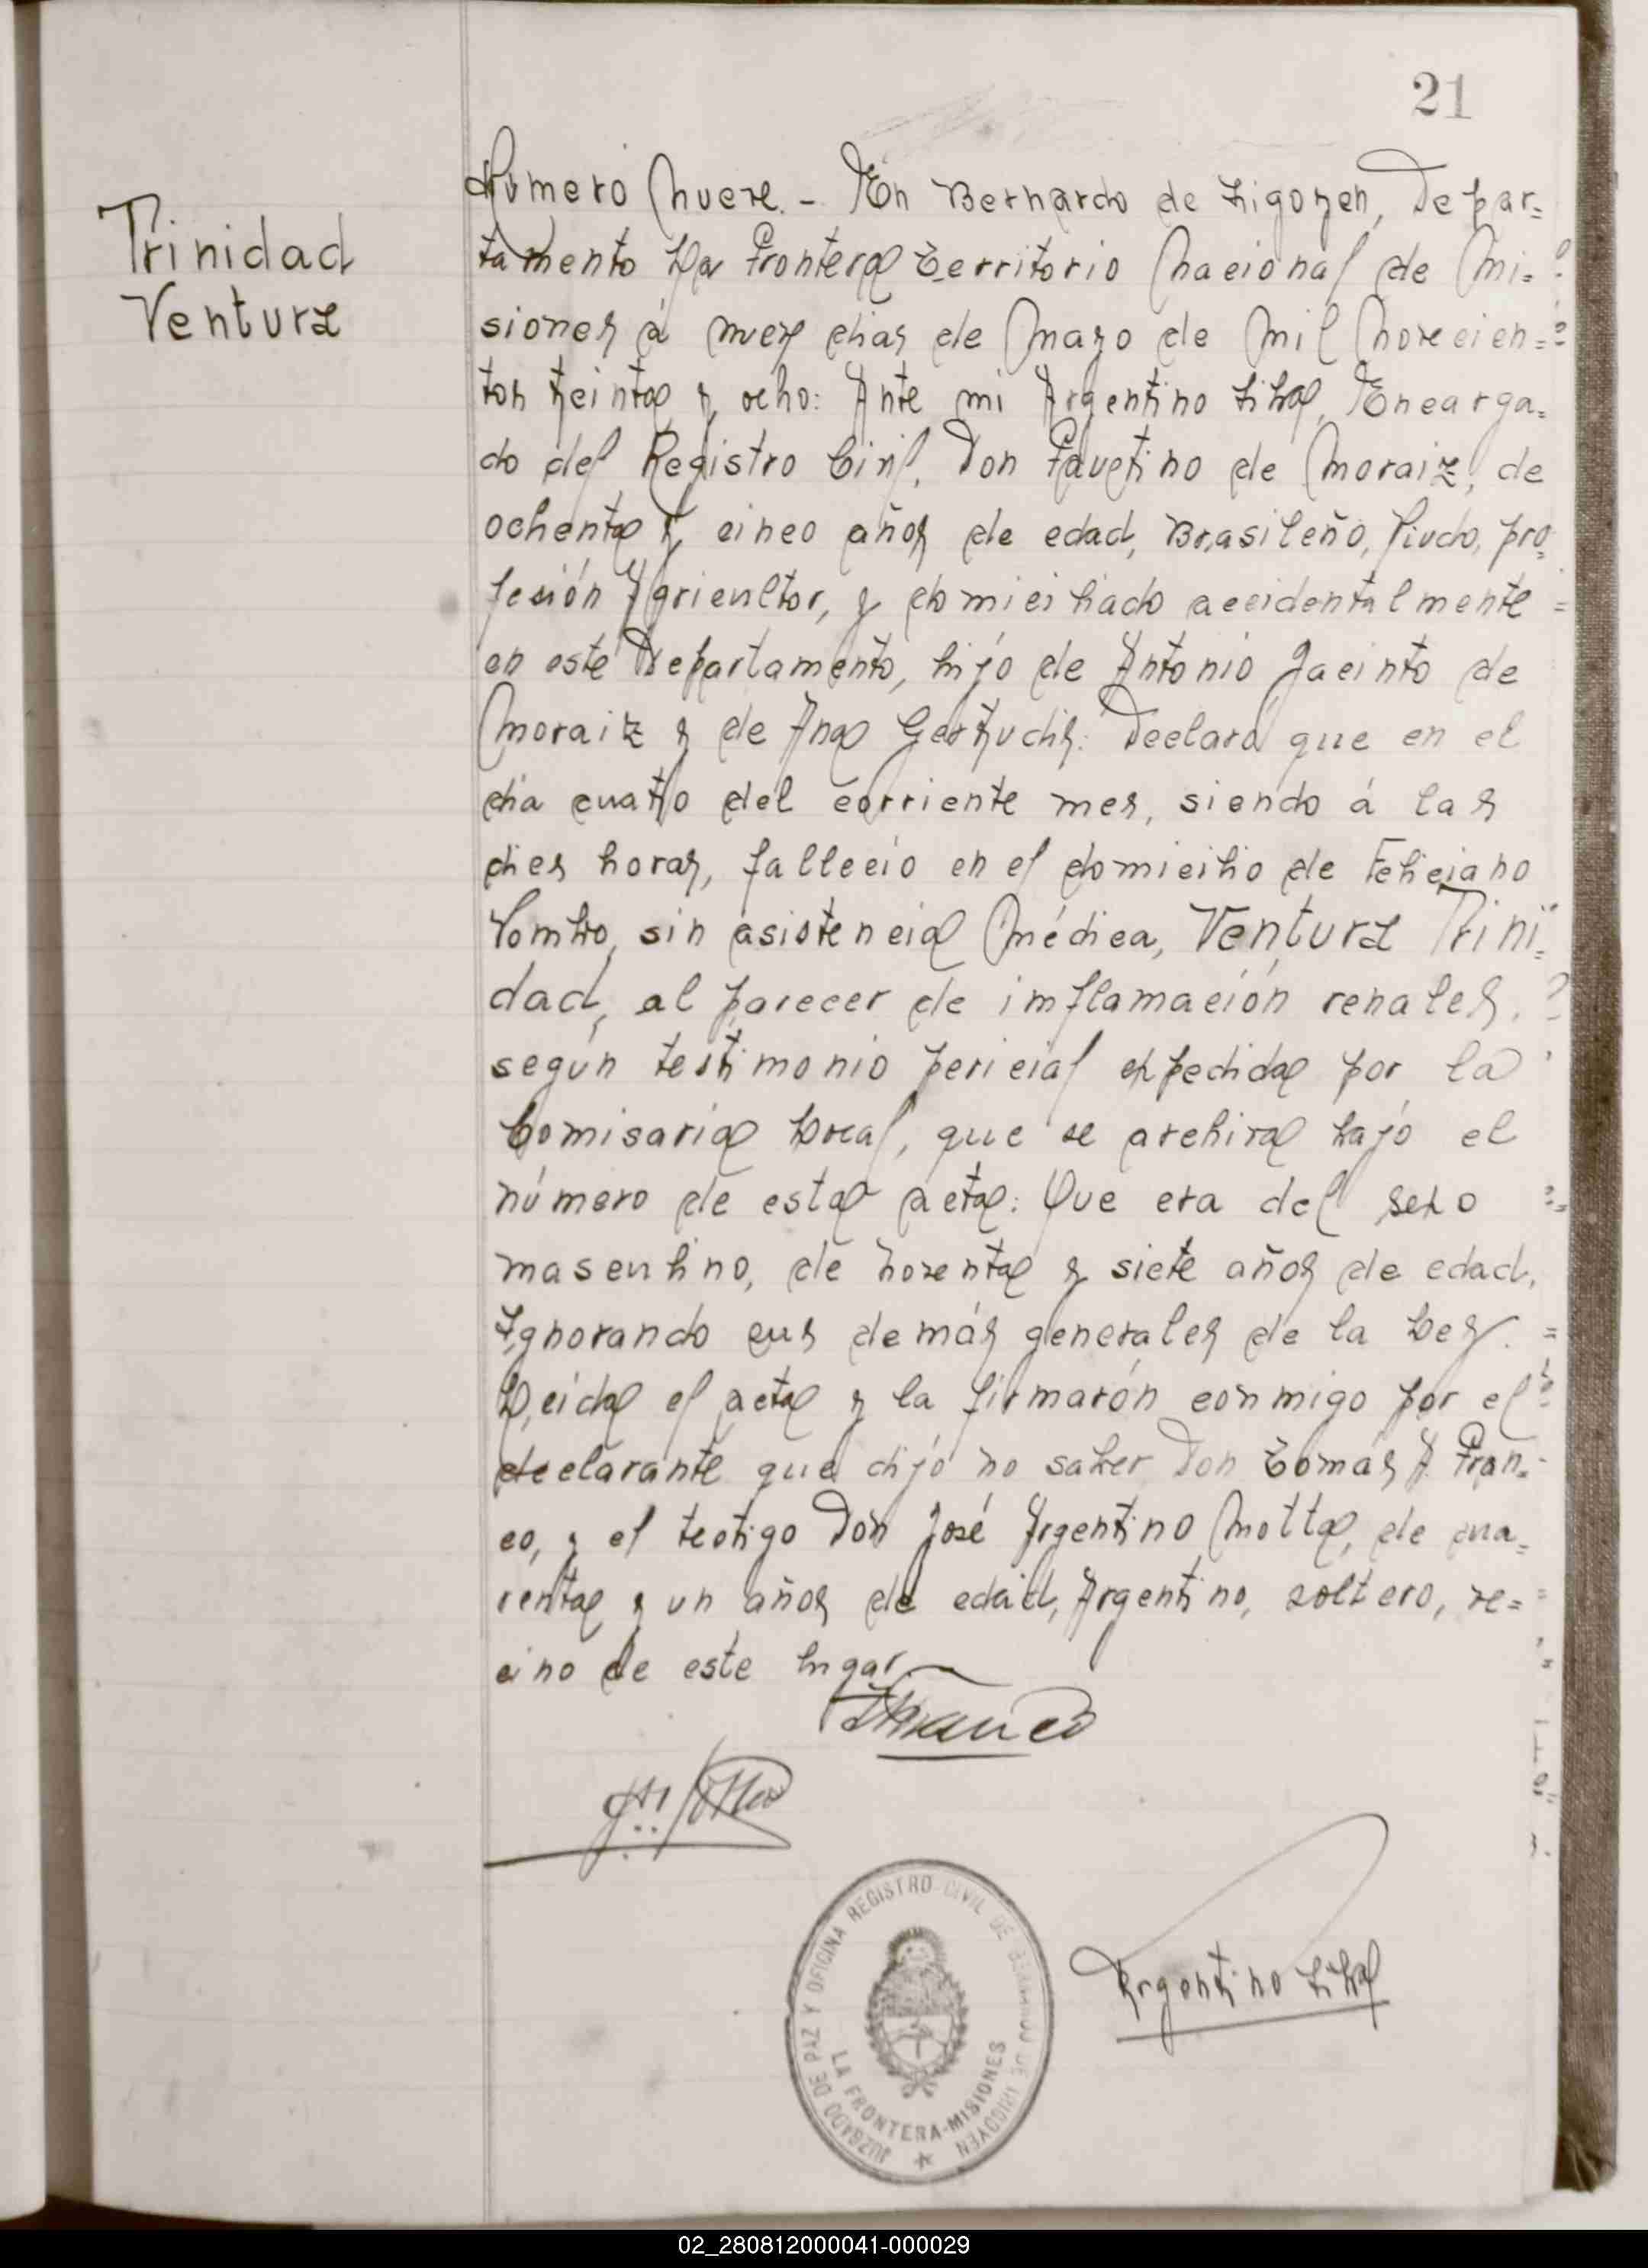 21
Trinidad
Ventura
Número Nueve.- En Bernardo de Irigoyen, Depar=
tamento La Frontera Territorio Nacional de Mi=
siones á nueve dias de Mayo de Mil Novecien=
tos treinta y ocho: Ante mi Argentino Silva, Encarga=
do del Registro Civil, Don Faustino de Moraiz, de
ochenta y cinco años de edad, Brasileño, Viudo, pro=
fesión Agricultor, y domiciliado accidentalmente
en este Departamento, hijo de Antonio Jacinto de
Moraiz y de Ana Gertrudis: Declaró que en el
día cuatro del corriente mes, siendo á las
dies horas, fallecio en el domicilio de Feliciano
sin asistencia Médica, Ventura Trini=
dad, al parecer de imflamación renales,
según testimonio pericial expedida por la
Comisaria Local, que se archiva bajó el
número de esta acta: Que era del sexo
masculino, de noventa y siete años de edad,
Ignorando sus demás generales de la Ley.
Leida el acta y la firmarón conmigo por el
declarante que dijó no saber Don Tomás A. Fran=
co, y el testigo Don José Argentino Motta, de cua=
renta y un años de edad, Argentino, soltero, ve=
cino de este lugar.
Franco
Argentino Silva
JUZGADO DE PAZ Y OFICINA REGISTRO CIVIL DE BERNARDO DE IRIGOYEN
LA FRONTERA-MISIONES
02_280812000041-000029